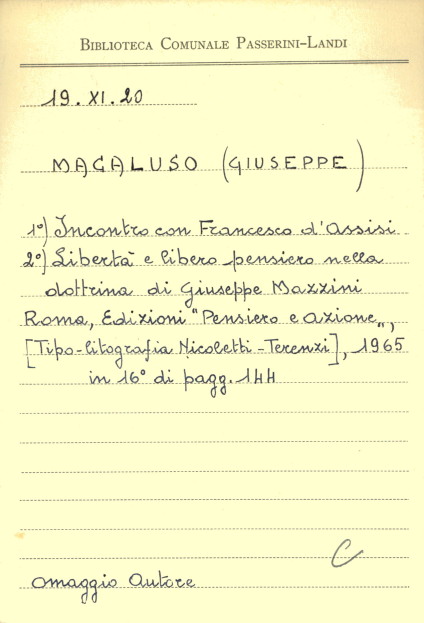 BIBLIOTECA COMUNALE PASSERINI-LANDI
19. XI. 20
MACALUSO (GIUSEPPE)
1°) Incontro con Francesco d'Assisi
2°) Libertà e libero pensiero nella
dottrina di Giuseppe Mazzini
Roma, Edizioni "Pensiero e azione",
[Tipo-litografia Nicoletti-Terenzi], 1965
in 16° di pagg. 144
C
omaggio Autore